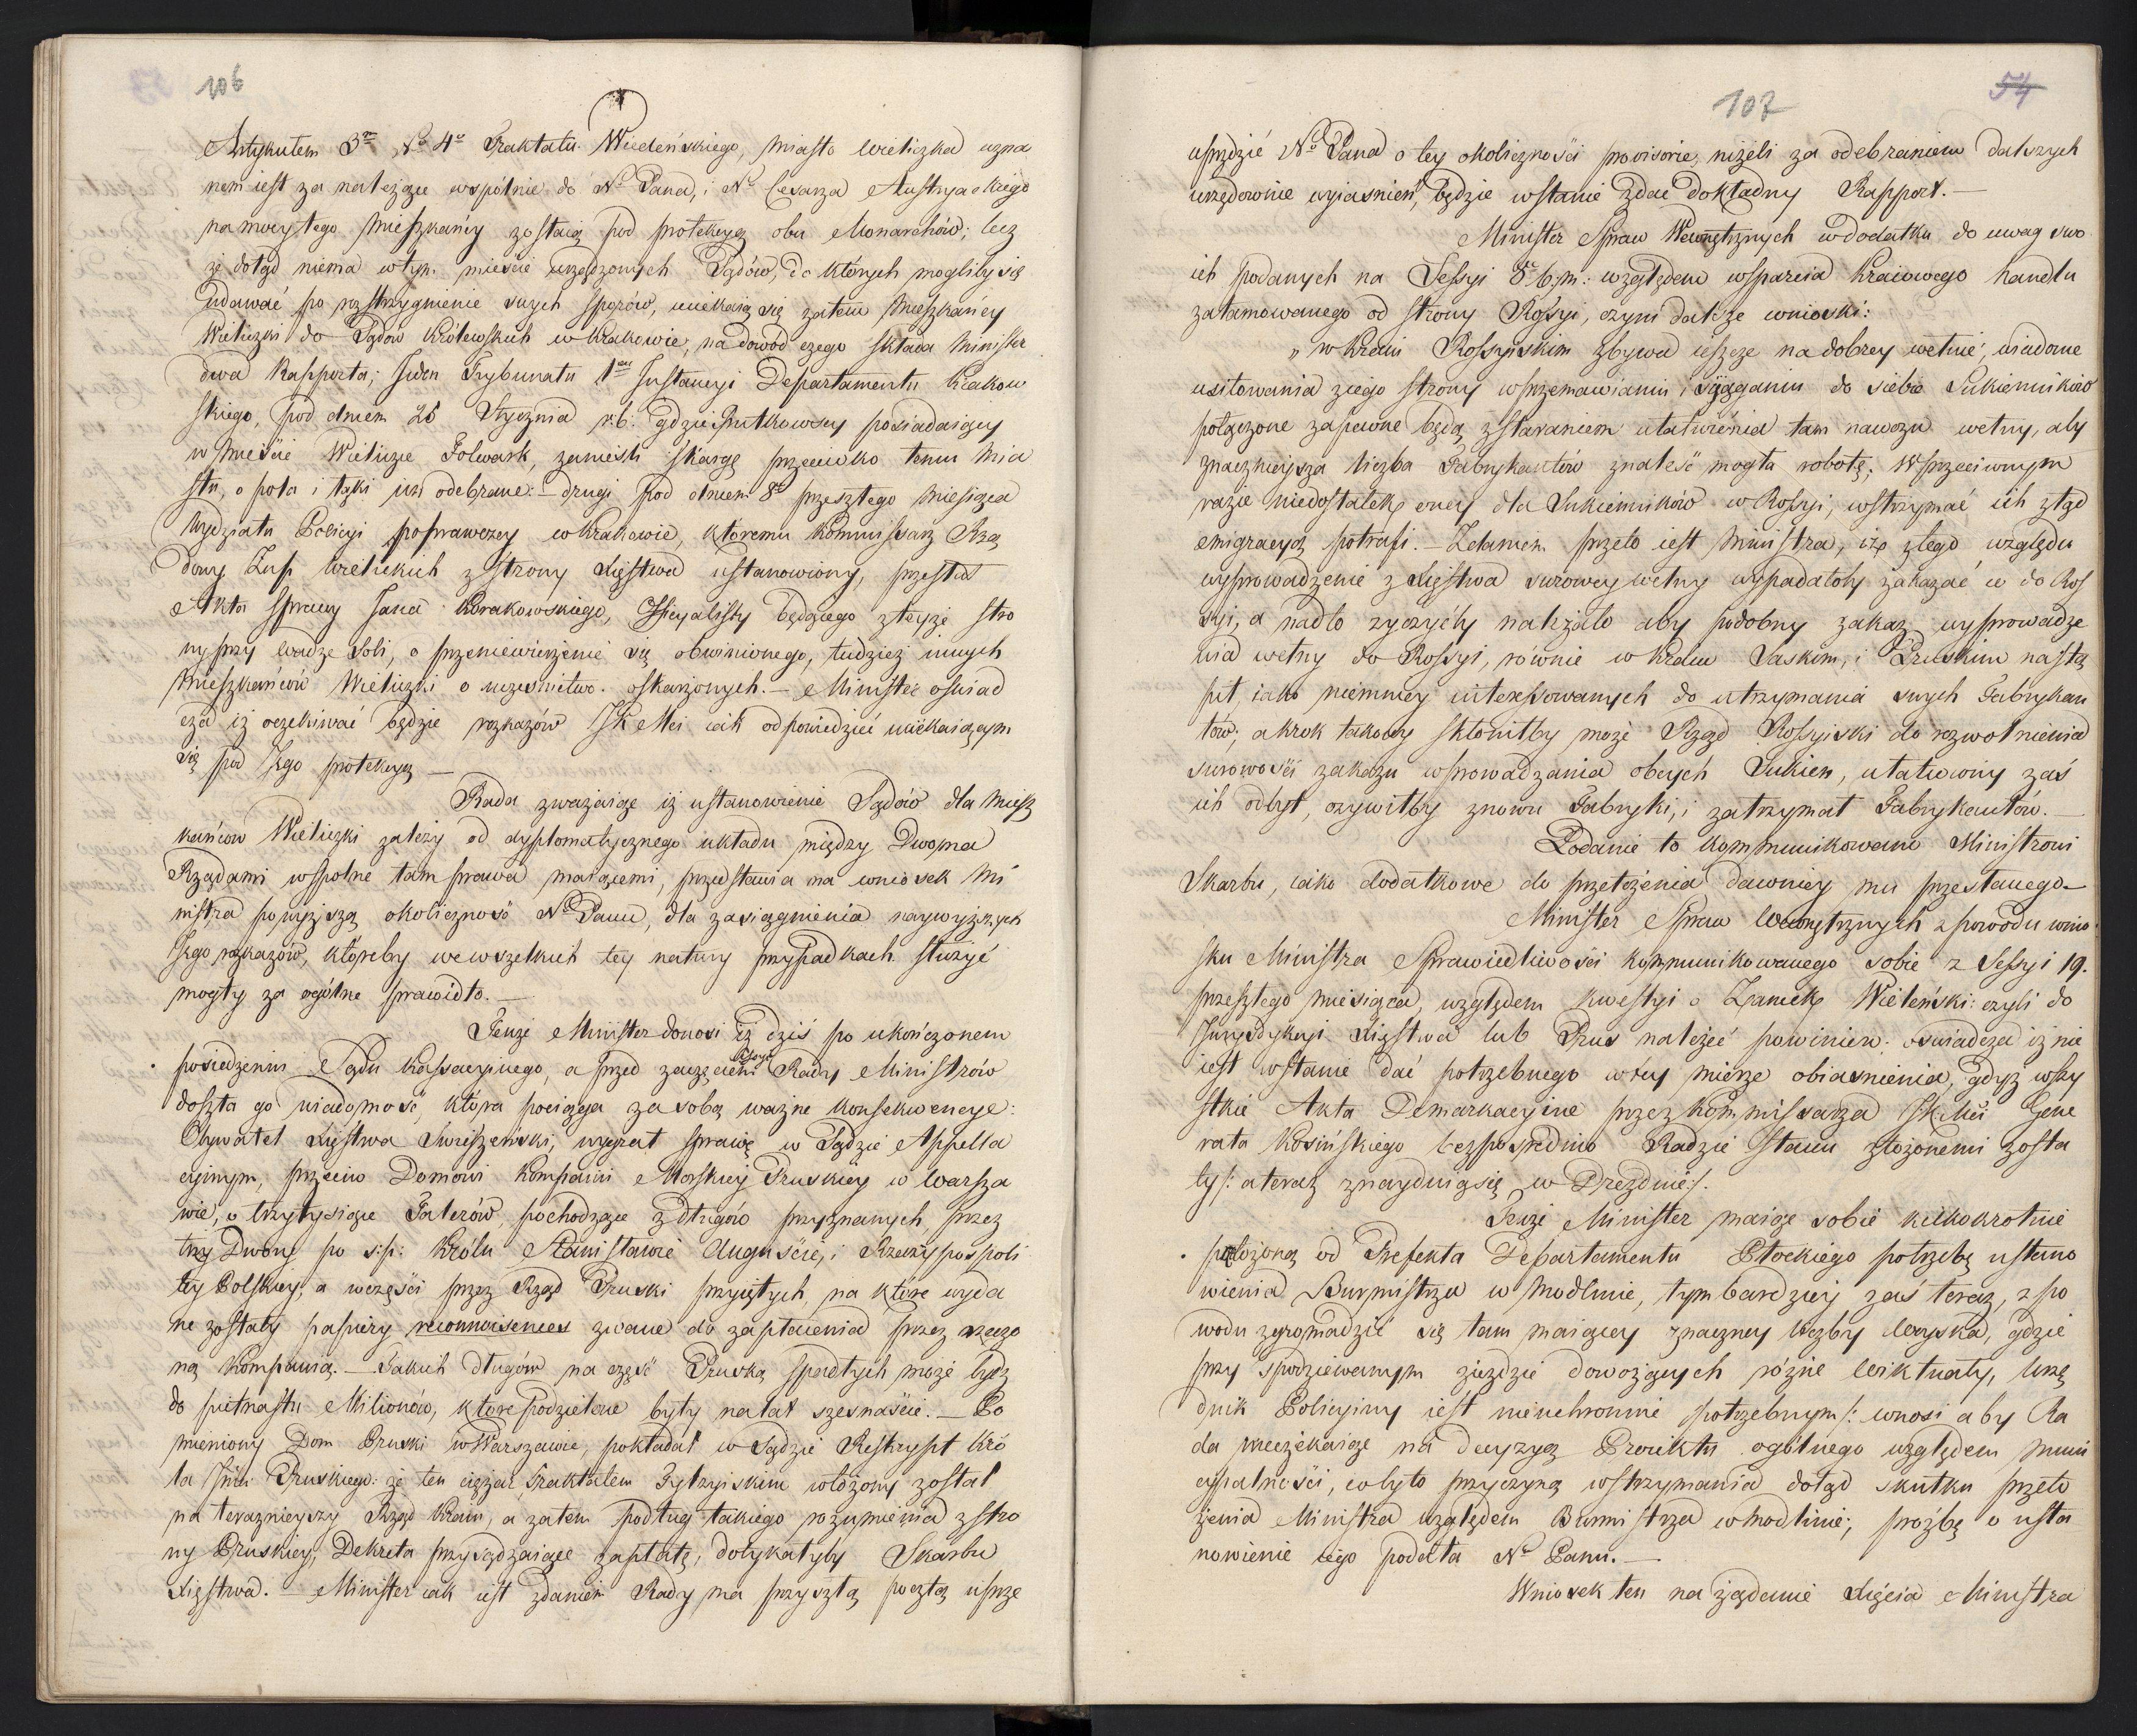 106
Artykułem 3m No 4o Traktatu Wiedeńskiego, miasto Wieliczka uzna
nem iest za należące wspólnie do No Pana, i No Cesarza Austryackiego
na mocy tego mieszkańcy zostaią pod protekcyą obu Monarchów; lecz
że dotąd niema w tym mieście urządzonych Sądów, do których mogliby się
udawać po rozstrzygnienie swych sporów, uciekaią się zatem mieszkańcy
Wieliczki do Sądów Królewskich w Krakowie, na dowod czego składa Minister
dwa Rapporta; Jeden Trybunału 1ey Instancyi Departamentu Krakow
skiego, pod dniem 25 Stycznia r.b. gdzie Rutkowscy posiadaiący
w mieście Wieliczce Folwark, zanieśli skargę przeciwko temu mia
stu, o pola i łąki im odebrane: – drugi pod dniem 8o przeszłego miesiąca
Wydziału Policyi poprawczey w Krakowie, ktoremu Kommissarz Rzą
dowy Żup Wielickich z strony Xięstwa ustanowiony, przesłał
Akta sprawy Jana Korakowskiego, Officyalisty będącego z teyże stro
ny przy wadze Soli, o przeniewierzenie się obwinionego, tudzież innych
Mieszkańców Wieliczki o uczesnictwo oskarżonych. – Minister oświad
cza iż oczekiwać będzie rozkazów JKMci iak odpowiedzieć uciekaiącym
się pod Jego protekcyą —
Rada zważaiąc iż ustanowienie Sądów dla Miesz
kańców Wieliczki zależy od dyplomatycznego układu między Dwoma
Rządami wspolne tam prawa maiącemi, przedstawia na wniosek Mi
nistra powyższą okoliczność No Panu, dla zasiągnienia naywyższych
Jego rozkazów, któreby we wszelkich tey natury przypadkach służyć
mogły za ogólne prawidło. —
Tenże Minister donosi iż dziś po ukończonem
posiedzeniu Sądu Kassacyinego, a przed zaczęciem Sessyi Rady Ministrów
doszła go wiadomość, która pociąga za sobą ważne konsekwencye:
Obywatel Xięstwa Swieszeński, wygrał sprawę w Sądzie Appella
cyinym, przeciwo Domowi Kompanii Morskiey Pruskiey w Warsza
wie, o trzy tysiące Talerów, pochodzące z długów przyznanych przez
trzy Dwory po s:p: Królu Stanisławie Auguście, i Rzeczypospoli
tey Polskiey, a w części przez Rząd Pruski przyiętych, na które wyda
ne zostały papiery reconnoisences zwane do zapłacenia przez rzeczo
ną Kompanią. – Takich długów na część Pruską spadłych może bydź
do pietnastu Milionów, które podzielone były na lat szesnaście. – Po
mieniony Dom Pruski w Warszawie, pokładał w Sądzie Reskrypt Kró
la Jmci Pruskiego: że ten ciężar Traktatem Tylżyiskim włożony został
na teraznieyszy Rząd Kraiu, a zatem podług takiego rozumienia z stro
ny Pruskiey, Dekreta przysądzaiące zapłatę, dotykałyby Skarbu
Xięstwa. – Minister iak iest zdaniem Rady, ma przyszłą pocztą uprze
107
54
uprzedzić No Pana o tey okoliczności provisorie, niżeli za odebraniem dalszych
urzędownie wyiasnień, będzie w stanie zdać dokładny Rapport. —
Minister Spraw Wewnętrznych w dodatku do uwag swo
ich podanych na Sessyi 8o b.m: względem wsparcia kraiowego handlu
zatamowanego od strony Rossyi, czyni dalsze wnioski:
„w Kraiu Rossyiskim zbywa ieszcze na dobrey wełnie, wiadome
usiłowania z iego strony w przemawianiu i sciąganiu do siebie Sukienników
połączone zapewne będą z staraniem ułatwienia tam nawozu wełny, aby
znacznieysza liczba Fabrykantów znaleść mogła robotę; W przeciwnym
razie niedostatek oney dla Sukienników w Rossyi, wstrzymać ich ztąd
emigracyą potrafi. – Zdaniem przeto iest Ministra, iż z tego względu
wyprowadzenie z Xięstwa surowey wełny wypadałoby zakazać w do Ros
syi, a nadto życzyćby należało aby podobny zakaz wyprowadze
nia wełny do Rossyi, równie w Kraiu Saskim, i Pruskim nastą
pił, iako niemniey interessowanych do utrzymania swych Fabrykan
tów; a krok takowy skłoniłby może Rząd Rossyiski do rozwolnienia
surowości zakazu wprowadzania obcych Sukien, ułatwiony zaś
ich odbyt, ożywiłby znowu Fabryki, i zatrzymał Fabrykantów. —
Podanie to kommunikowano Ministrowi
Skarbu, iako dodatkowe do przełożenia dawniey mu przesłanego. –
Minister Spraw Wewnętrznych z powodu wnio
sku Ministra Sprawiedliwości kommunikowanego sobie z Sessyi 19.
przeszłego miesiąca, względem kwestyi o Zamek Wieleński: czyli do
Jurysdykcyi Xięstwa lub Prus należeć powinien: oswiadcza iż nie
iest w stanie dać potrzebnego w tey mierze obiasnienia, gdyż wszy
stkie Akta Demarkacyine przez Kommissarza JKMci Gene
rała Kosińskiego bezpośrednio Radzie Stanu złożonemi zosta
ły /: a teraz znayduią się w Dreźnie :/.
Tenże Minister maiąc sobie kilkokrotnie
przełożoną od Prefekta Departamentu Płockiego potrzebę ustano
wienia Burmistrza w Modlinie, tym bardziey zaś teraz, z po
wodu zgromadzić się tam maiącey znaczney liczby woyska, gdzie
przy spodziewanym zieździe dowożących różne wiktuały, Urzę
dnik Policyiny iest nieuchronnie potrzebnym /: wnosi aby Ra
da nieczekaiąc na decyzyą Proiektu ogólnego względem muni
cypalności, co było przyczyną wstrzymania dotąd skutku przeło
żenia Ministra względem Burmistrza w Modlinie, prozbę o usta
nowienie iego podała No Panu. —
Wniosek ten na żądanie Xięcia Ministra